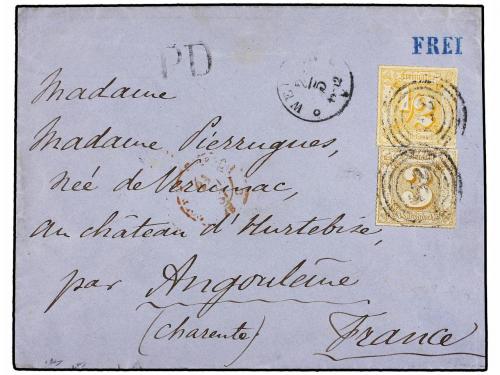 FREI
PD
Madame
Madame Pierrugues,
née de Verninac,
au château d'Hurtebise,
par Angoulême
(Charente) France